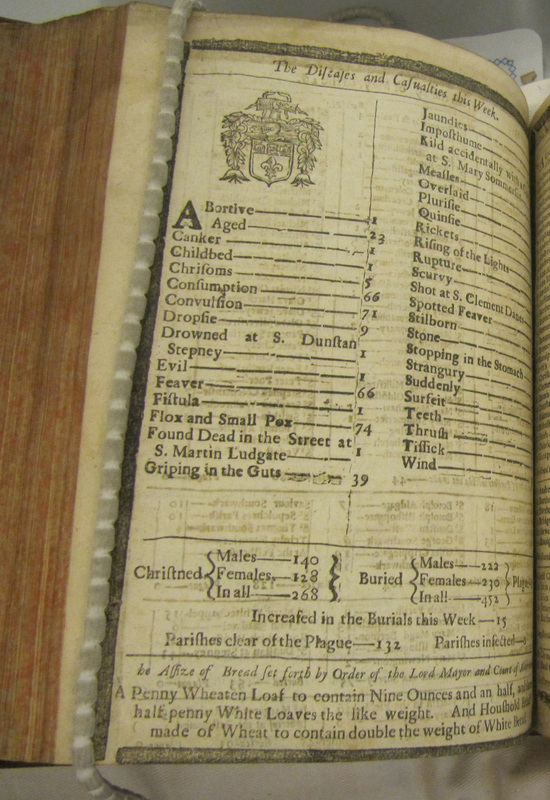 The Diſeaſes and Caſualties this Week.
ABortive 1
Aged 23
Canker 1
Childbed 1
Chriſoms 5
Conſumption 66
Convulſion 71
Dropſie 9
Drowned at S. Dunſtan
Stepney 1
Evil 1
Feaver 66
Fiſtula 1
Flox and Small Pox 74
Found Dead in the Street at
S. Martin Ludgate 1
Griping in the Guts 39
Jaundies
Impoſthume
Kild accidentally
at S. Mary
Meaſles
Overlaid
Pluriſie
Quinſie
Rickets
Riſing of the Lights
Rupture
Scurvy
Shot at S. Clement Danes
Spotted Feaver
Stilborn
Stone
Stopping in the Stomach
Strangury
Suddenly
Surfeit
Teeth
Thruſh
Tiſſick
Wind
Chriſtned { Males 140
Females 128
In all 268 }
Buried { Males 222
Females 230
In all 452 }
Increaſed in the Burials this Week 15
Pariſhes clear of the Plague 132 Pariſhes infected
he Aſſize of Bread ſet forth by Order of the Lord Mayor and Court of
A Penny Wheaten Loaf to contain Nine Ounces and an half,
half-penny White Loaves the like weight. And Houſhold
made of Wheat to contain double the weight of White